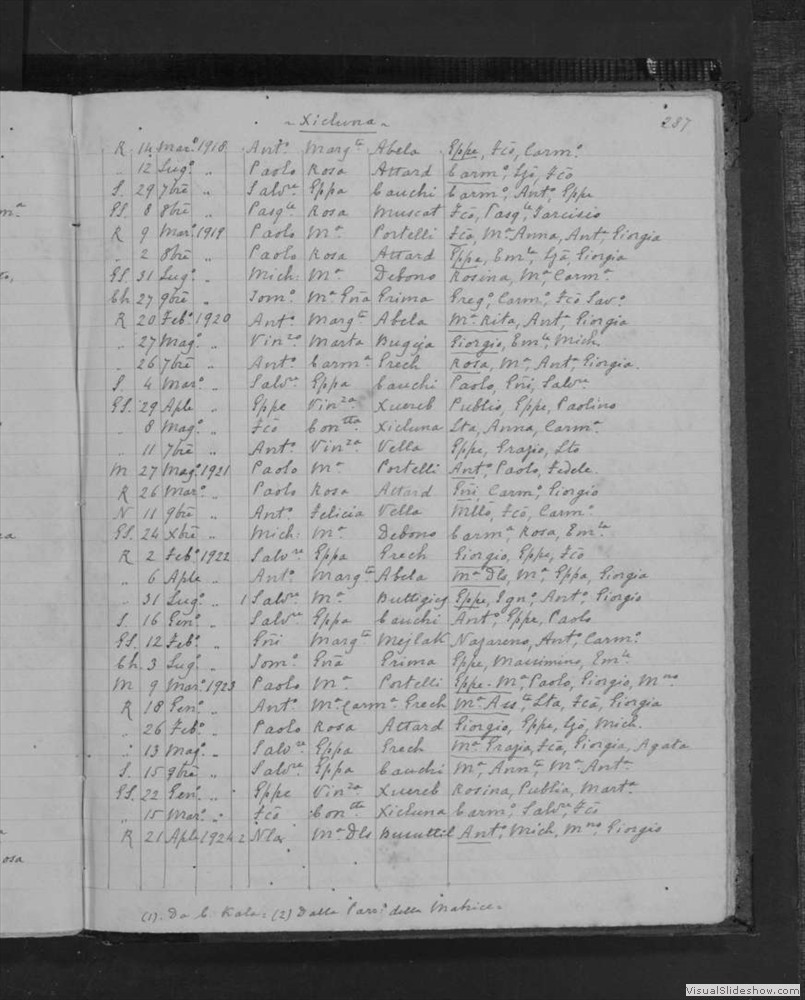 - Xicluna -
287.
R 14 Mar.º 1918 Ant.º Marg.ta Abela Eppe, Fcõ, Carm.º
„ 12 Lug.º „ Paolo Rosa Attard Carm.º, Ljõ, Fcõ
S. 29 7brẽ „ Salv.re Eppa Cauchi Carm.º, Ant.º, Eppe
ES. 8 8brẽ „ Pasq.le Rosa Muscat Fcõ, Pasq.le, Tarcisio
R 9 Mar.º 1919 Paolo M.a Portelli Fcã, M.a Anna, Ant.a, Giorgia
„ 2 8brẽ „ Paolo Rosa Attard Eppa, Em.la, Ljã, Giorgia
ES. 31 Lug.º „ Mich: M.a Debono Rosina, M.a, Carm.a
Ch 27 9brẽ „ Tom.º M.a Gñã Grima Greg.º, Carm.º, Fcõ Sav.º
R 20 Feb.º 1920 Ant.º Marg.ta Abela M.a Rita, Ant.a, Giorgia
„ 27 Mag.º „ Vin.zo Marta Bugeja Giorgio, Em.le, Mich.
„ 26 7brẽ „ Ant.º Carm.a Grech Rosa, M.a, Ant.a, Giorgia.
S. 4 Mar.º „ Salv.re Eppa Cauchi Paolo, Gñi, Salv.re
ES. 29 Aple „ Eppe Vin.za Xuereb Publio, Eppe, Paolino
„ 8 Mag.º „ Fcõ Con.tta Xicluna Lta, Anna, Carm.a
„ 11 7brẽ „ Ant.º Vin.za Vella Eppe, Grazio, Lto
M 27 Mag.º 1921 Paolo M.a Portelli Ant.º, Paolo, Fedele.
R 26 Mar.º „ Paolo Rosa Attard Gñi, Carm.º, Giorgio
N 11 9brẽ „ Ant.º Felicia Vella Fcõ, Carm.º
ES. 24 Xbrẽ „ Mich: M.a Debono Carm.a, Rosa, Em.la
R 2 Feb.º 1922 Salv.re Eppa Grech Giorgio, Eppe, Fcõ
„ 6 Aple „ Ant.º Marg.ta Abela M.a Dls, M.a, Eppa, Giorgia
„ 31 Lug.º „ 1 Salv.re M.a Buttigieg Eppe, Ign.º, Ant.º, Giorgio
S. 16 Gen.º „ Salv.re Eppa Cauchi Ant.º, Eppe, Paolo
ES. 12 Feb.º „ Gñi Marg.ta Mejlak Nazareno, Ant.º, Carm.º
Ch 3 Lug.º „ Tom.º Gñã Grima Eppe, Massimino, Em.le
M 9 Mar.º 1923 Paolo M.a Portelli Eppe M.a, Paolo, Giorgio, M.no
R 18 Gen.º „ Ant.º M.a Carm.a Grech M.a Ass.ta, Lta, Fcã, Giorgia
„ 26 Feb.º „ Paolo Rosa Attard Giorgio, Eppe, Ljõ, Mich.
„ 13 Mag.º „ Salv.re Eppa Grech M.a Grazia, Fcã, Giorgia, Agata
S. 15 9brẽ „ Salv.re Eppa Cauchi M.a, Ann.ta, M.a Ant.a
ES. 22 Gen.º „ Eppe Vin.za Xuereb Rosina, Publia, Mart.a
„ 15 Mar.º „ Fcõ Con.tta Xicluna Carm.º, Salv.re, Fcõ
R 21 Aple 1924 2 Nla M.a Dls Busuttil Ant.º, Mich, M.no, Giorgio
(1). Da C. Kala: (2) Dalla Parr.a della Matrice.
osa
VisualSlideshow.com